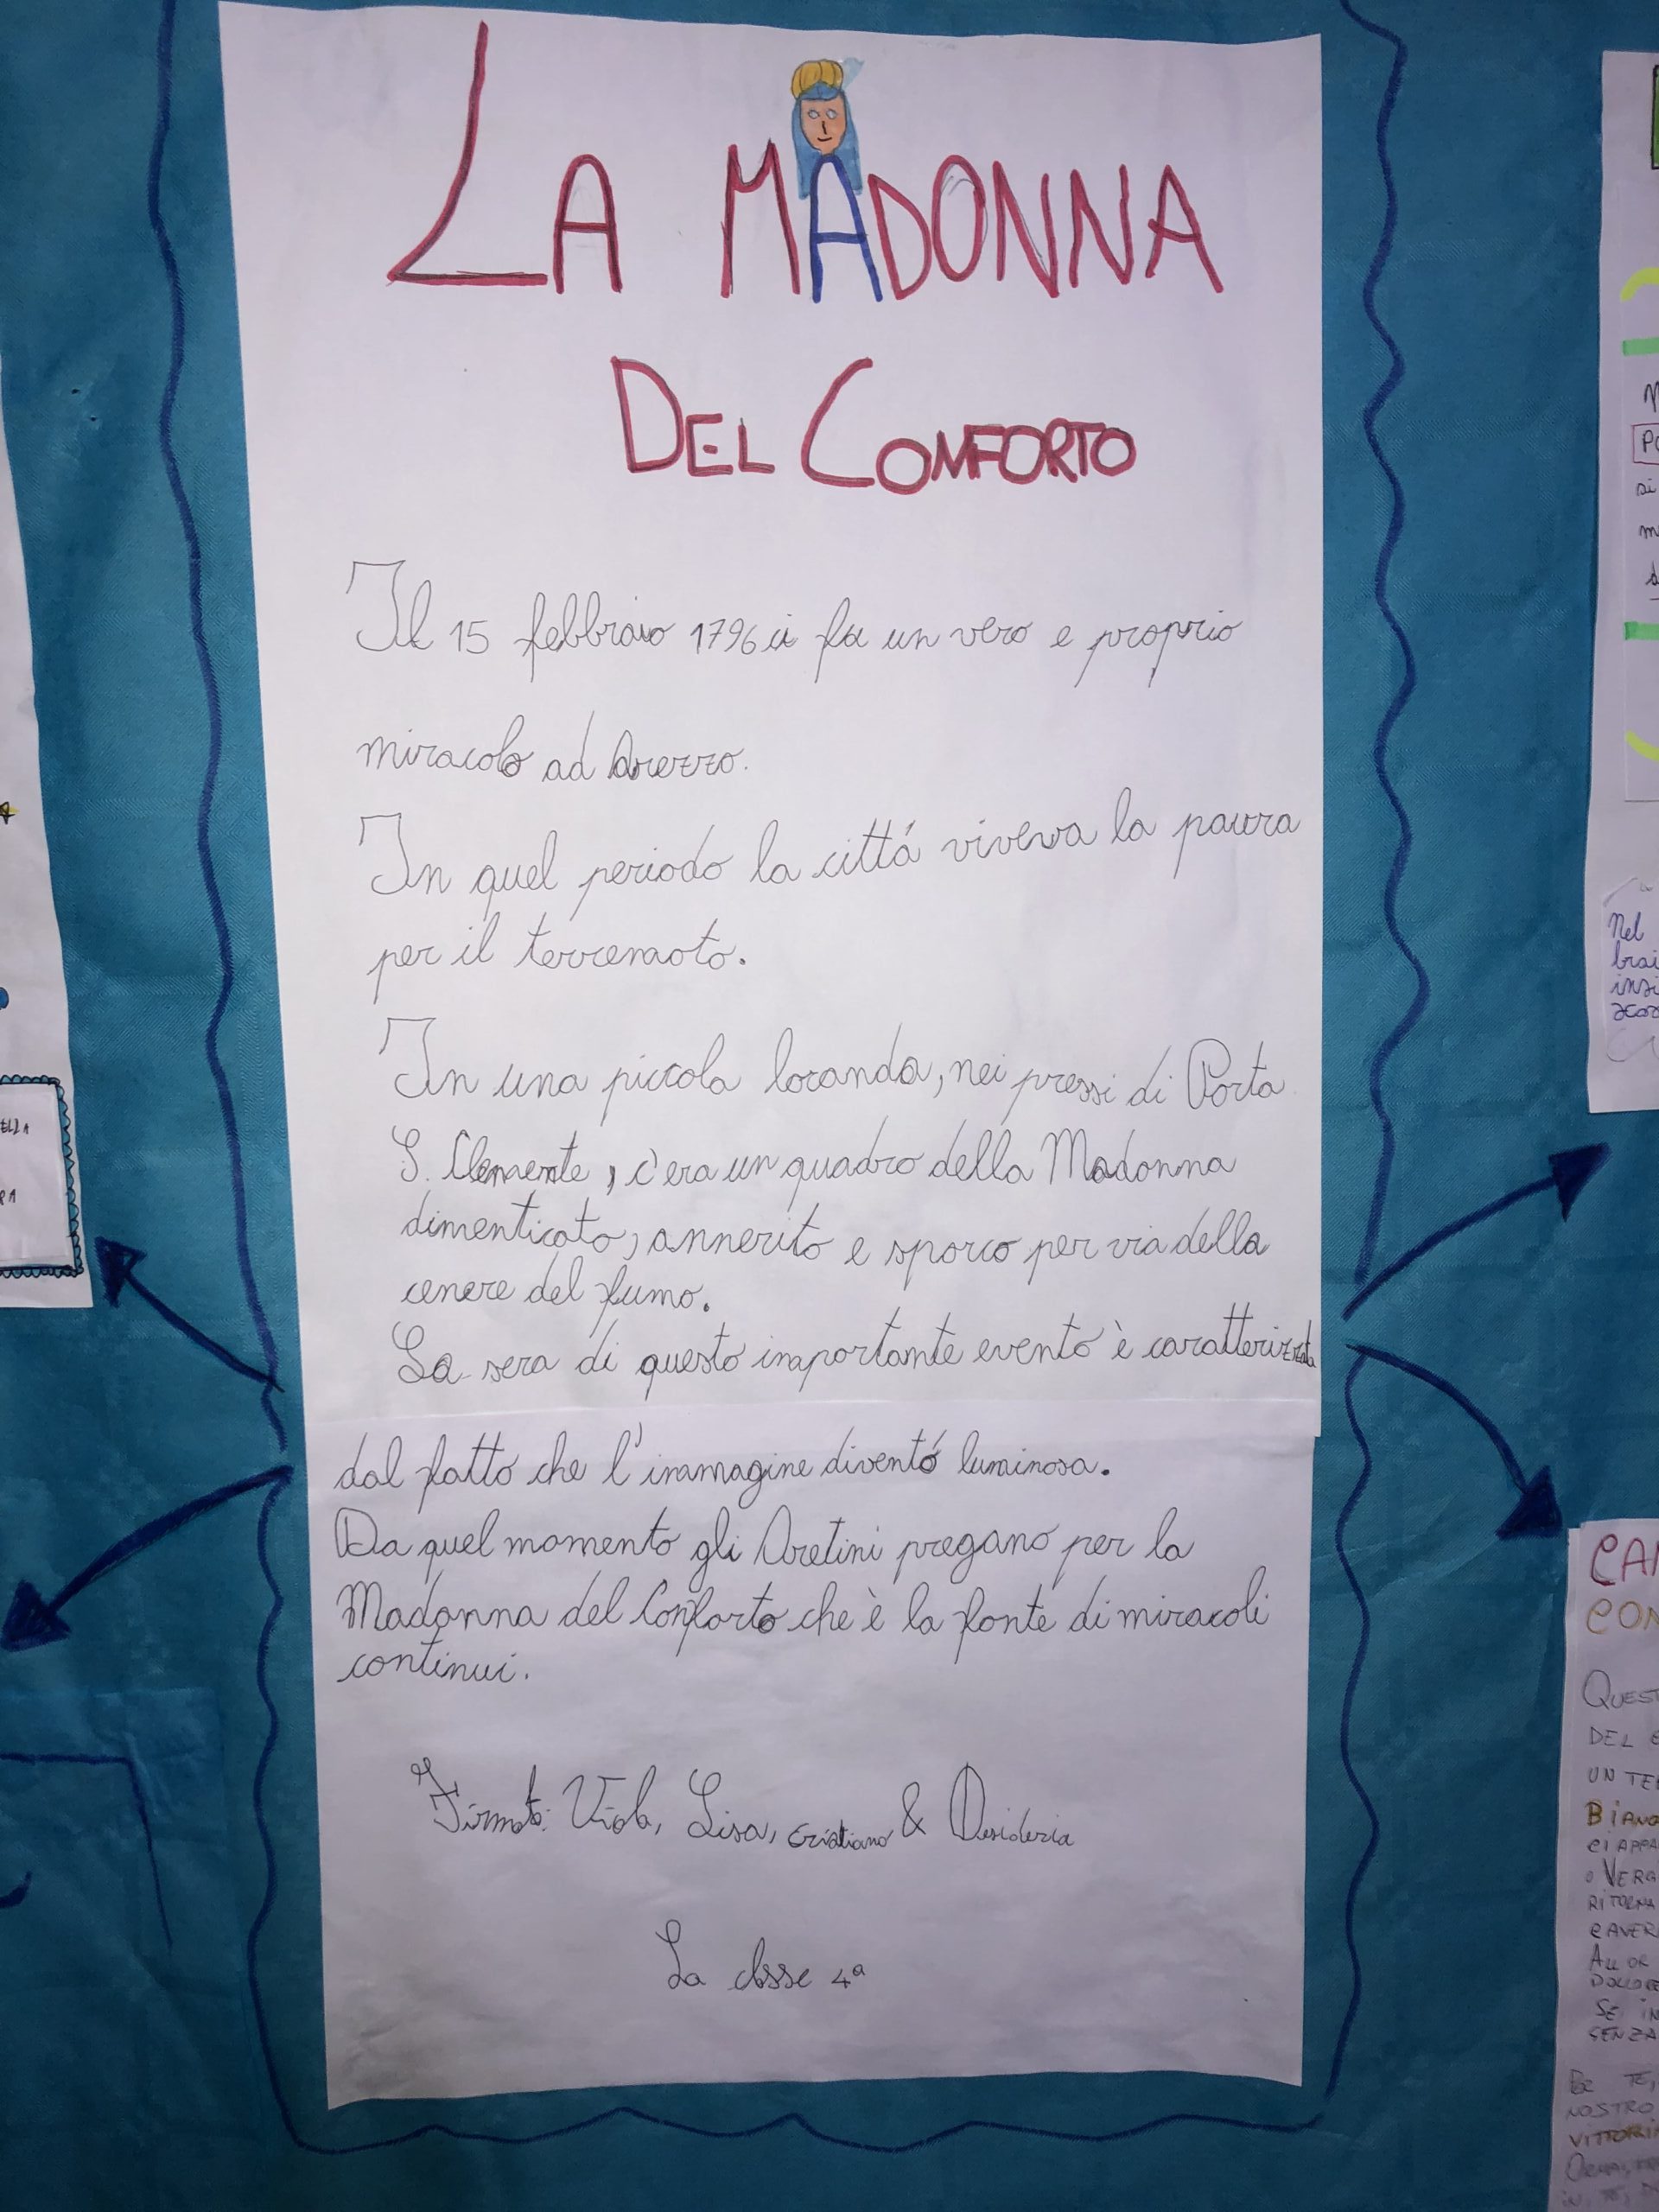 LA MADONNA
DEL CONFORTO
Il 15 febbraio 1796 ci fu un vero e proprio
miracolo ad Arezzo.
In quel periodo la cittá viveva la paura
per il terremoto.
In una piccola locanda, nei pressi di Porta
S. Clemente, c'era un quadro della Madonna
dimenticato, annerito e sporco per via della
cenere del fumo.
La sera di questo importante evento è caratterizzata
dal fatto che l'immagine diventó luminosa.
Da quel momento gli Aretini pregano per la
Madonna del Conforto che è la fonte di miracoli
continui.
Firmato: Viola, Lisa, Cristiano & Desideria
La classe 4ª
ELLA
RA
Nel
CA
CON
QUEST
DEL
UN TE
BIANC
CI APPA
O VERG
RITORNA
SE IN
SENZA
TE,
NOSTRO
VITTORI